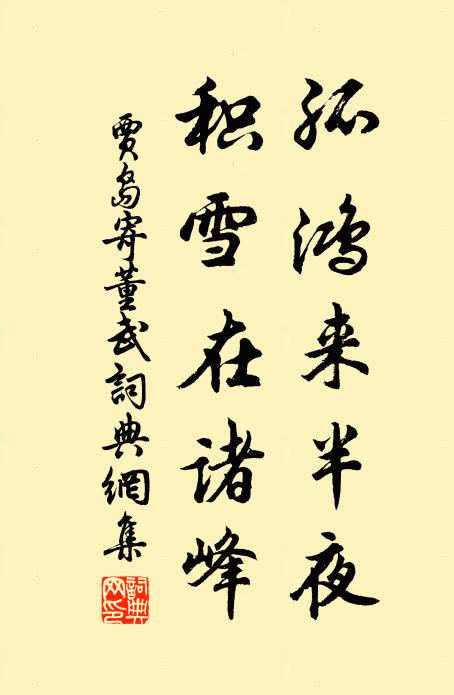 孤鸿来半夜
积雪在诸峰
賈島寄董武詞典網集
詞典網印